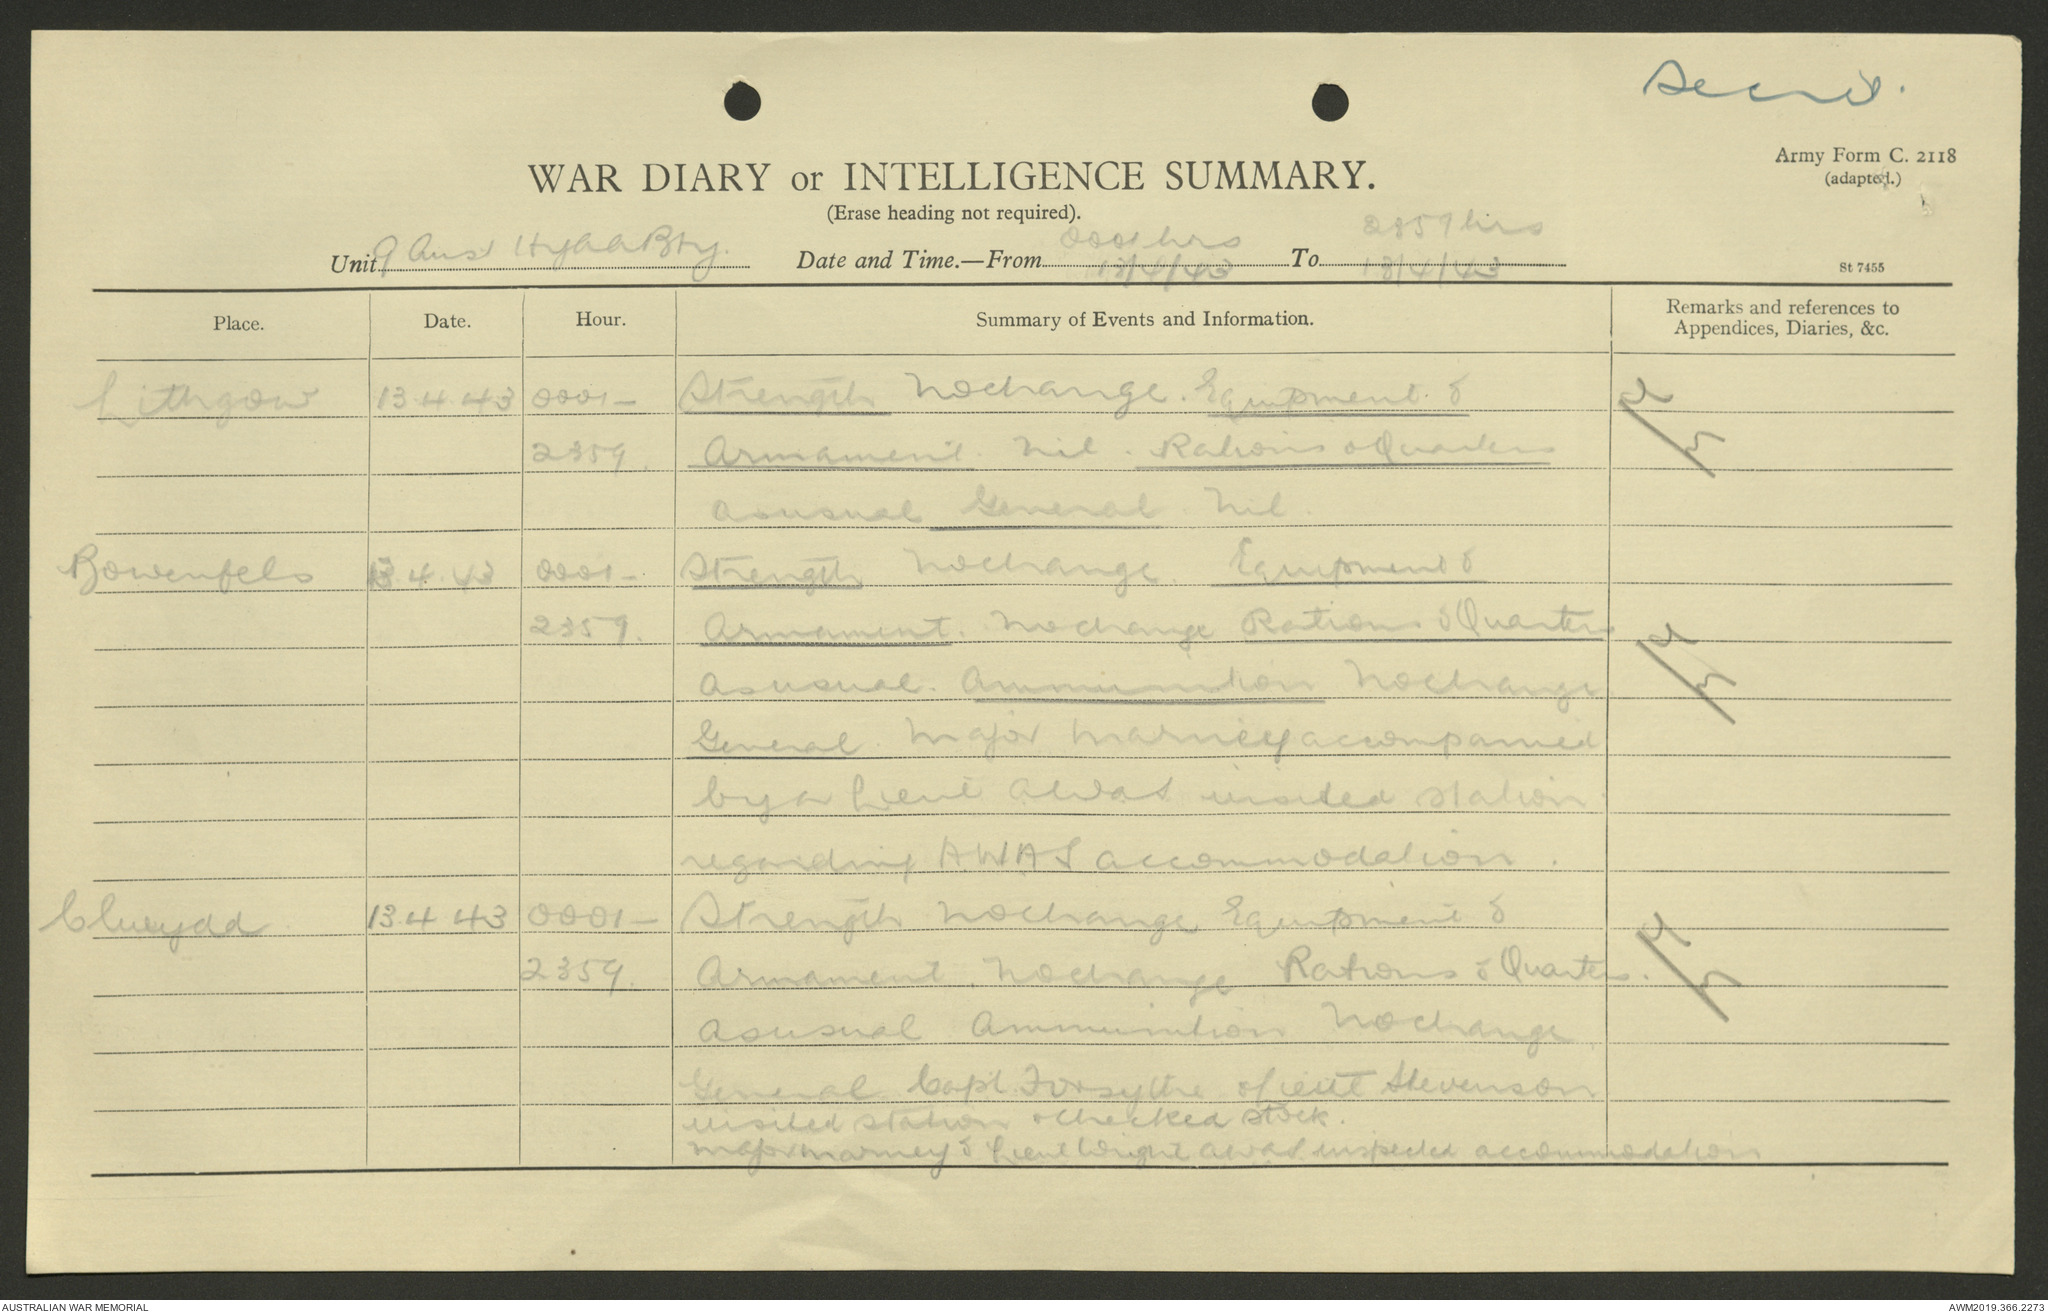 Secret.
Army Form C. 2118
(adapted.)
WAR DIARY or INTELLIGENCE SUMMARY.
(Erase heading not required).
Unit 9 Aust Hy AA Bty. Date and Time.—From 0001 hrs 13/4/43 To 2359 hrs 13/4/43
St 7455
Place. Date. Hour. Summary of Events and Information. Remarks and references to Appendices, Diaries, &c.
Lithgow 13.4.43 0001- Strength No change. Equipment &
2359. Armament. Nil. Rations & Quarters
As usual General. Nil.
Bowenfels 13.4.43 0001- Strength No change. Equipment &
2359. Armament. No change Rations & Quarters
As usual. Ammunition No change
General. Major Marney accompanied
by a Lieut AWAS visited station
regarding AWAS accommodation.
Clwydd 13.4.43 0001- Strength No change Equipment &
2359. Armament. No change Rations & Quarters.
As usual Ammunition No change
General Capt. Forsythe & Lieut Stevenson
visited station & checked stock.
Major Marney & Lieut Wright AWAS inspected accommodation
AUSTRALIAN WAR MEMORIAL
AWM2019.366.2273